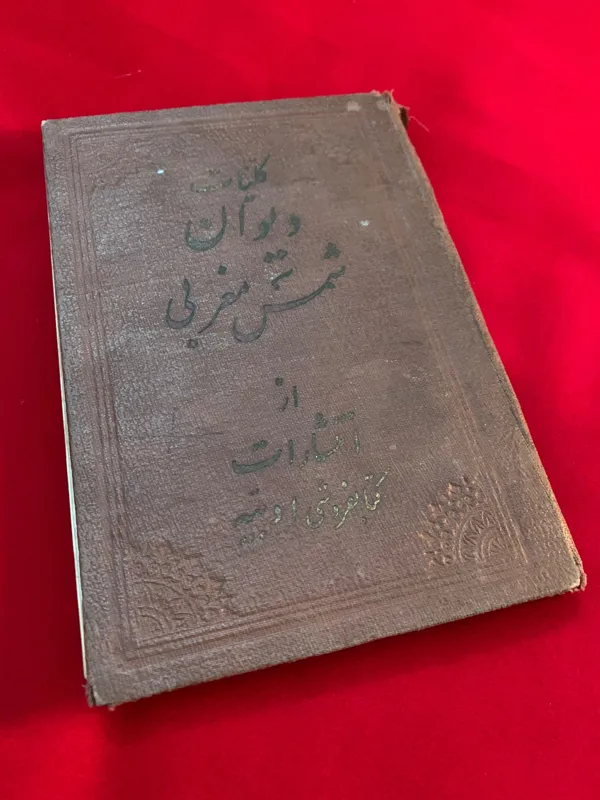 کلیات
دیوان
شمس مغربی
از
انتشارات
کتابفروشی ادبیه